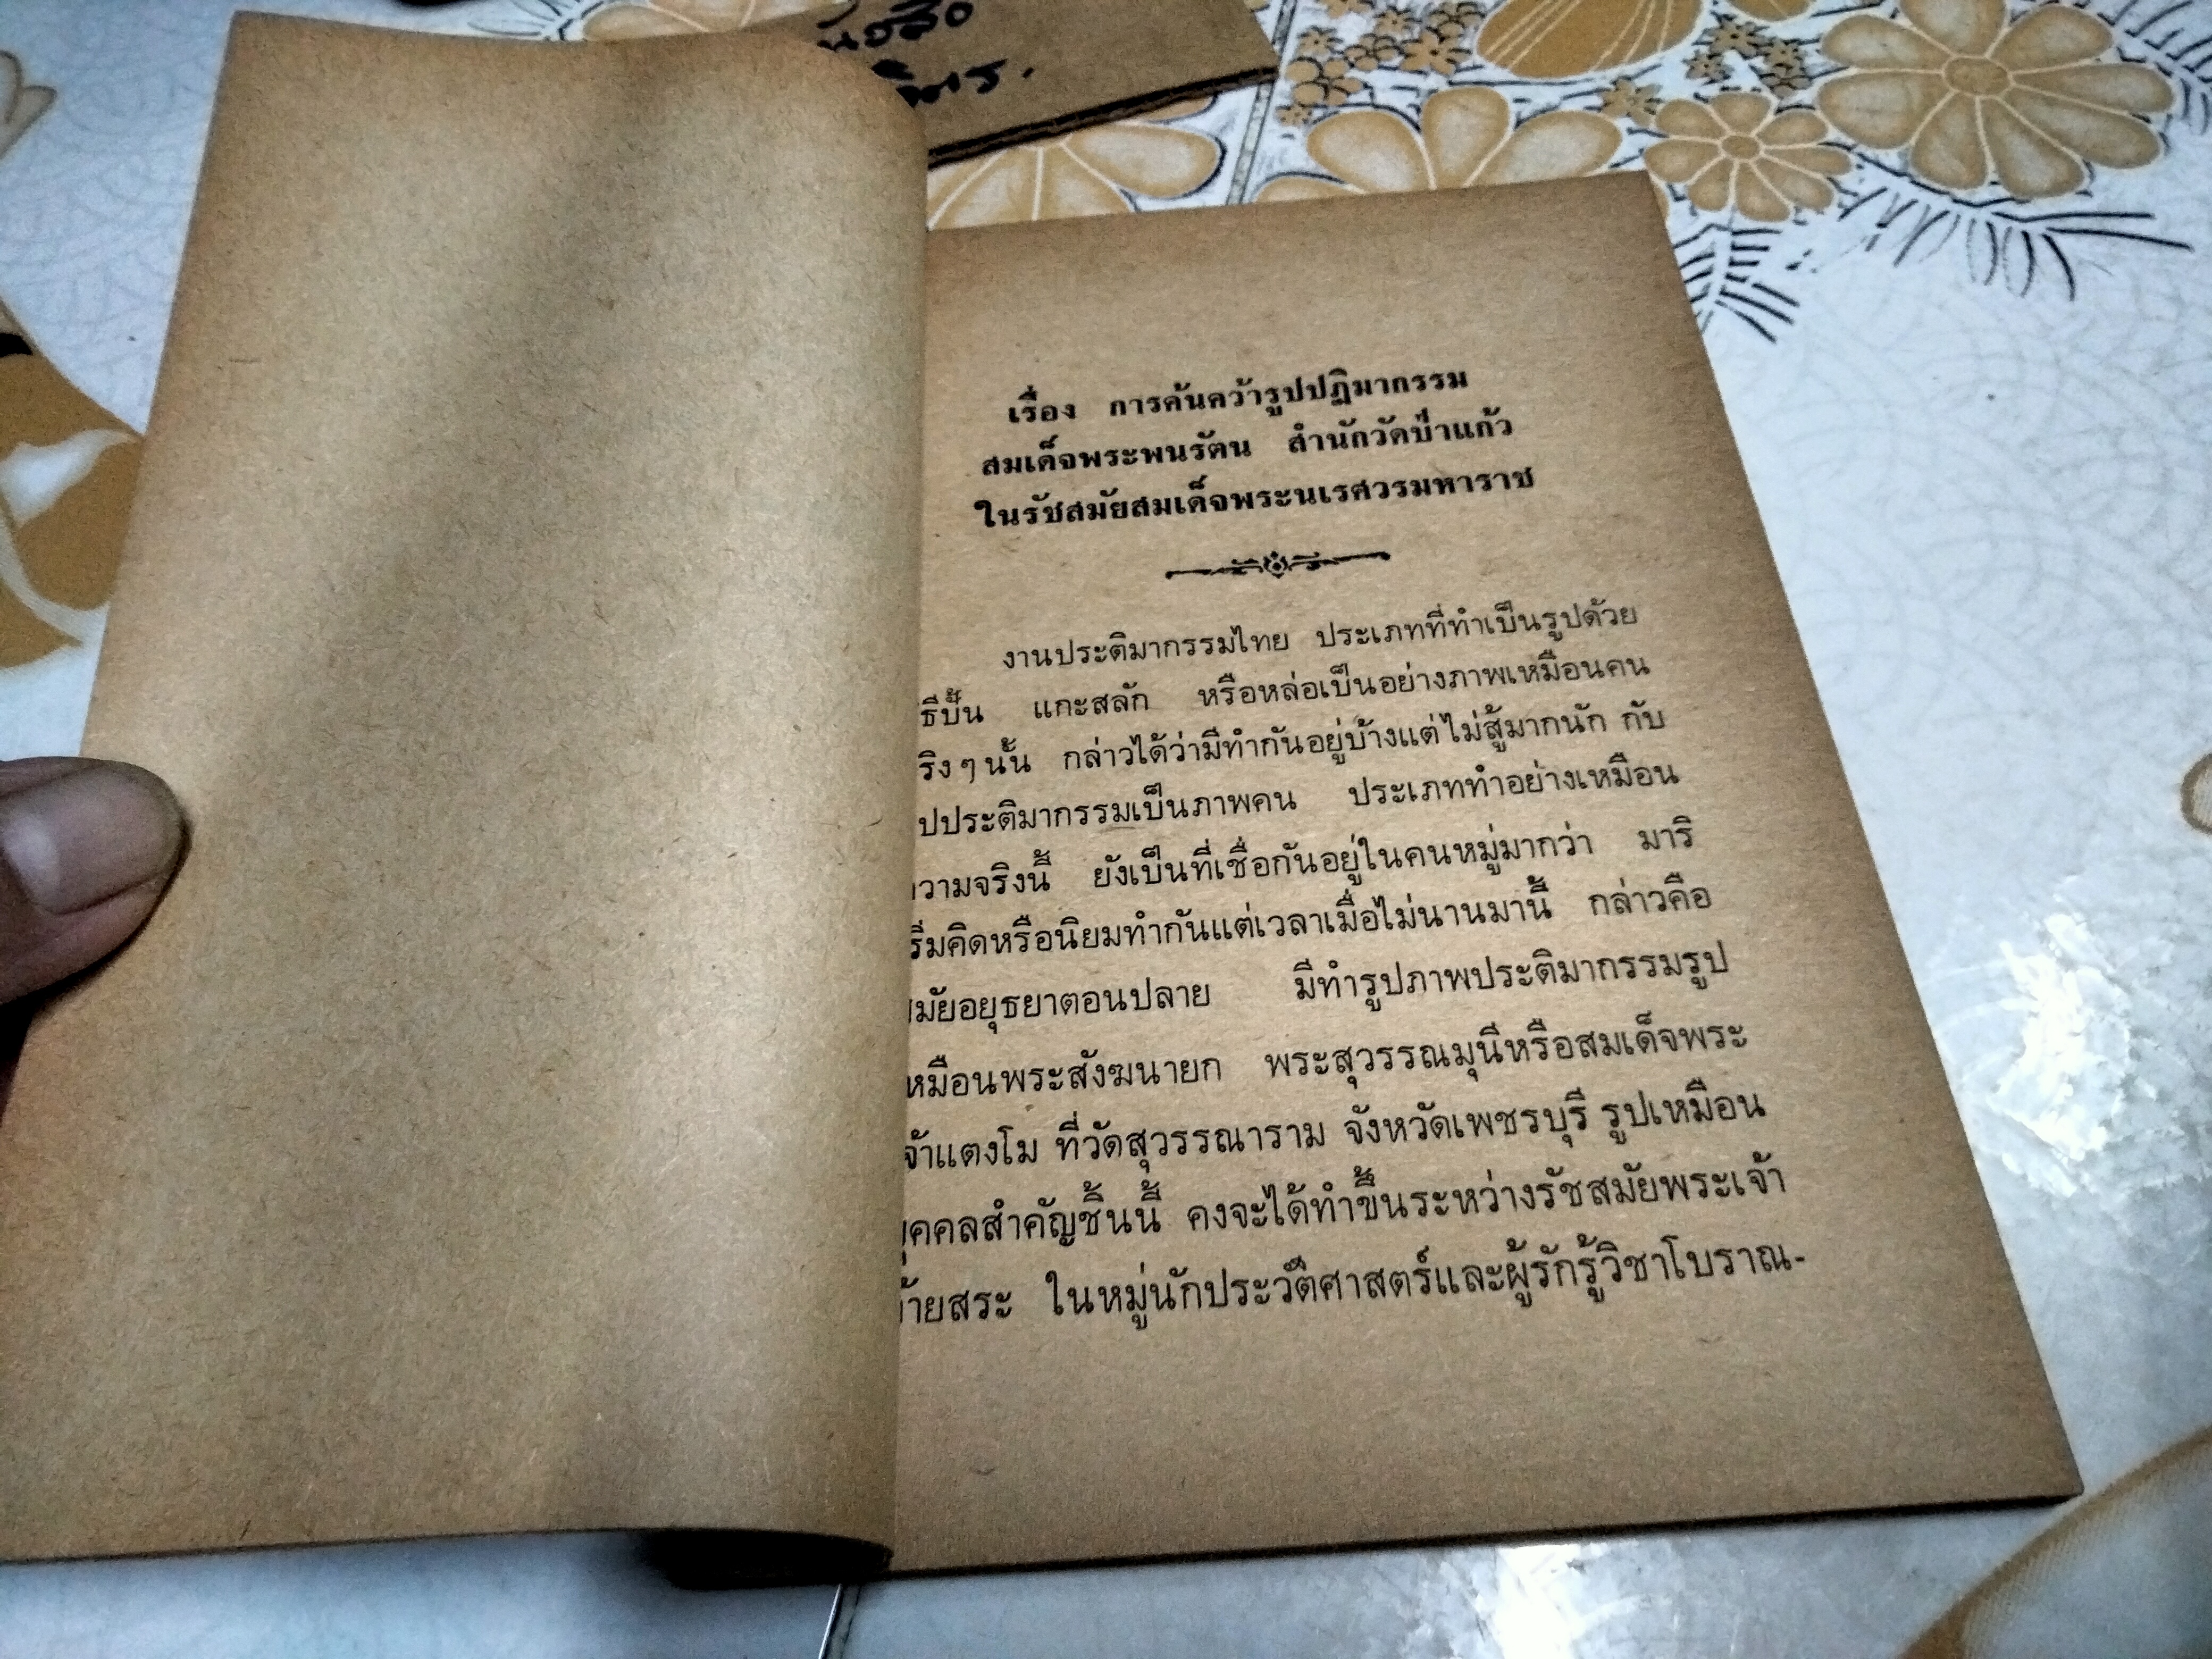 เรื่อง การค้นคว้ารูปปฏิมากรรม
สมเด็จพระพนรัตน สำนักวัดป่าแก้ว
ในรัชสมัยสมเด็จพระนเรศวรมหาราช
งานประติมากรรมไทย ประเภทที่ทำเป็นรูปด้วย
ธีปั้น แกะสลัก หรือหล่อเป็นอย่างภาพเหมือนคน
ริงๆนั้น กล่าวได้ว่ามีทำกันอยู่บ้างแต่ไม่สู้มากนัก กับ
ปประติมากรรมเป็นภาพคน ประเภททำอย่างเหมือน
วามจริงนี้ ยังเป็นที่เชื่อกันอยู่ในคนหมู่มากว่า มาริ
ริ่มคิดหรือนิยมทำกันแต่เวลาเมื่อไม่นานมานี้ กล่าวคือ
มัยอยุธยาตอนปลาย มีทำรูปภาพประติมากรรมรูป
หมือนพระสังฆนายก พระสุวรรณมุนีหรือสมเด็จพระ
จ้าแตงโม ที่วัดสุวรรณาราม จังหวัดเพชรบุรี รูปเหมือน
ุคคลสำคัญชิ้นนี้ คงจะได้ทำขึ้นระหว่างรัชสมัยพระเจ้า
้ายสระ ในหมู่นักประวัติศาสตร์และผู้รักรู้วิชาโบราณ-